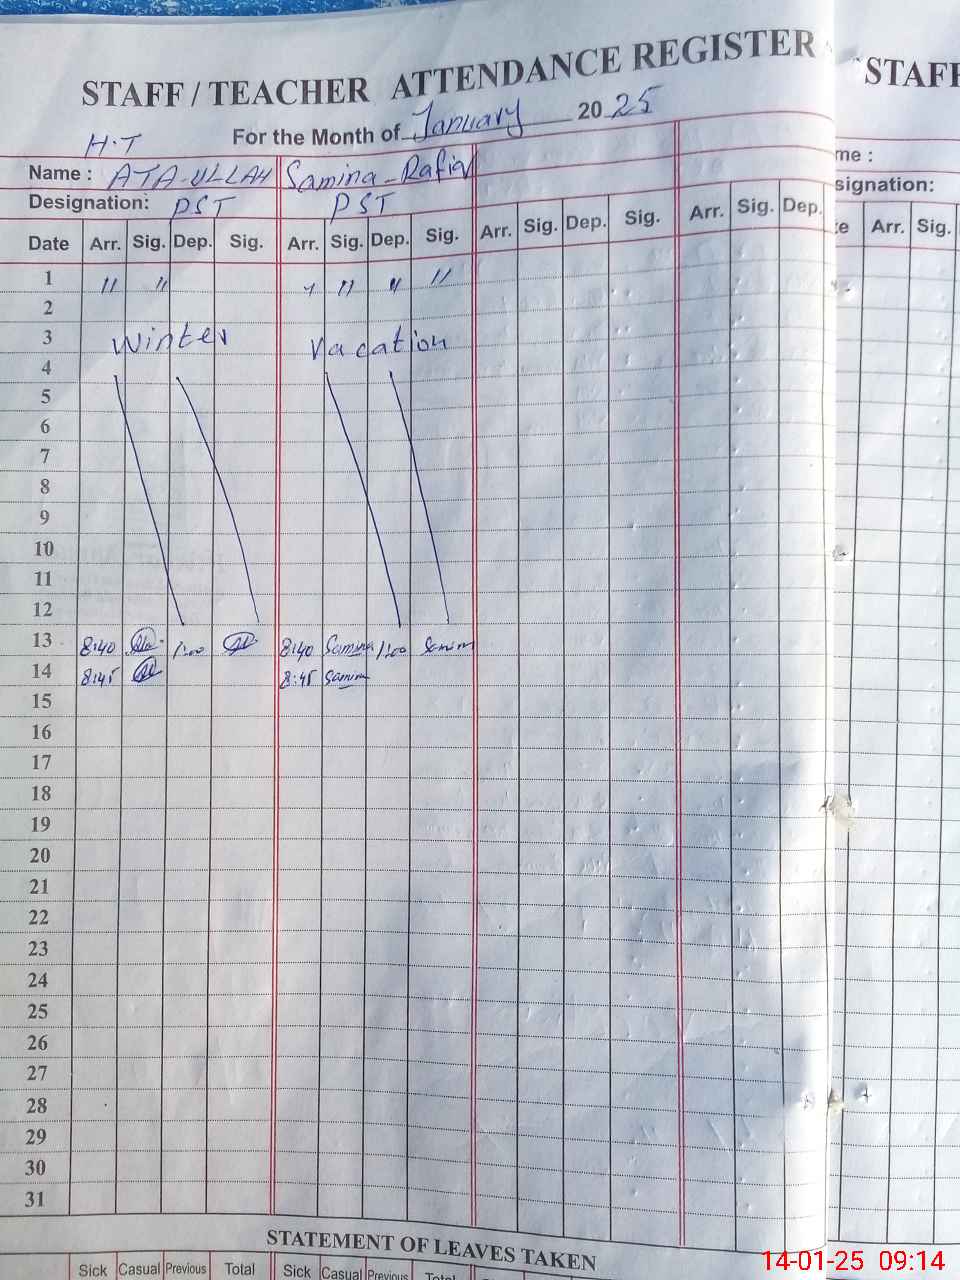 STAFF / TEACHER ATTENDANCE REGISTER
STAFF
For the Month of January 2025
H.T
Name : ATA-ULLAH Samina Rafiq
me :
Designation: PST PST
signation:
Date Arr. Sig. Dep. Sig. Arr. Sig. Dep. Sig. Arr. Sig. Dep. Sig. Arr. Sig. Dep.
te Arr. Sig.
1 " " " " " "
2
3 Winter Vacation
4
5
6
7
8
9
10
11
12
13 8:40 1:00 8:40 Samina 1:00 Samina
14 8:45 8:45 Samina
15
16
17
18
19
20
21
22
23
24
25
26
27
28
29
30
31
STATEMENT OF LEAVES TAKEN
Sick Casual Previous Total Sick Casual Previous Total
14-01-25 09:14